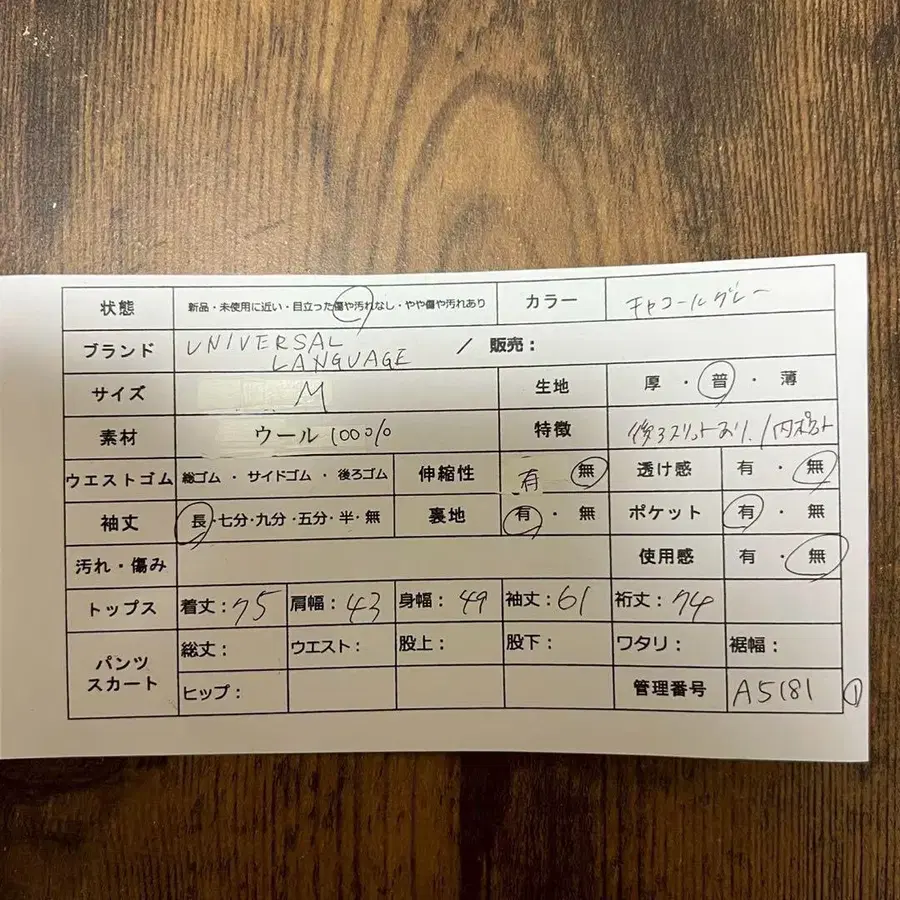 状態 新品・未使用に近い・目立った傷や汚れなし・やや傷や汚れあり カラー チャコールグレー
ブランド UNIVERSAL LANGUAGE / 販売：
サイズ M 生地 厚・普・薄
素材 ウール100% 特徴 後ろスリットあり./内ポケット
ウエストゴム 総ゴム・サイドゴム・後ろゴム 伸縮性 有 無 透け感 有・無
袖丈 長・七分・九分・五分・半・無 裏地 有・無 ポケット 有・無
汚れ・傷み 使用感 有・無
トップス 着丈：75 肩幅：43 身幅：49 袖丈：61 裄丈：74
パンツ スカート 総丈： ウエスト： 股上： 股下： ワタリ： 裾幅：
ヒップ： 管理番号 A5181 ①